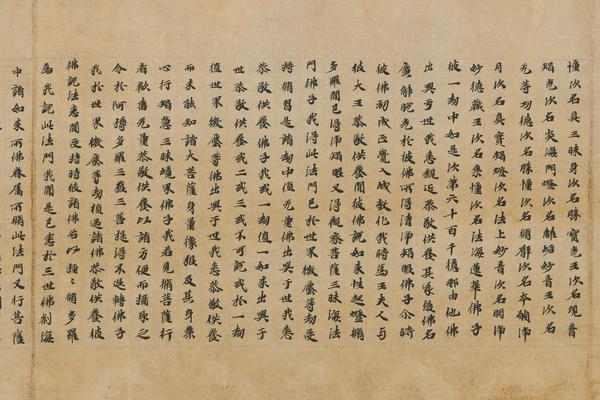 幢次名真三昧身次名勝寶光王次名現普
焰光次名炎海門燈次名離垢妙音王次名
无等功德次名勝幢次名須彌次名本願淨
月次名真實燈次名法上妙音次名明淨
妙德藏王次名乘幢次名法海蓮華佛子
彼一劫中如是次第六十百千億那由他佛
出興于世我悉親近恭敬供養其最後佛名
廣解脫光於彼佛所得清淨焰眼佛子尒時
彼佛初成正覺入城教化我時爲王夫人与
彼大王恭敬供養時彼如來性起燈
多羅聞已得淨焰眼又得觀察菩薩三昧海法
門佛子我得此法門已於世界微塵等劫受
持脩習是諸劫中值无量佛出興于世我悉
恭敬供養佛子我或一劫值一如來出興于
世恭敬供養或二或三或不可說或於一劫
值世界微塵等佛出興于世我悉恭敬供養
而未能知諸大菩薩身量像類及其身業
心行焰慧三昧境界佛子我若見脩菩薩行
者歡喜无量恭敬供養以諸方便而攝取之
令於阿耨多羅三藐三菩提得不退轉佛子
我於世界微塵等劫值遇諸佛恭敬供養彼
佛說法悉聞受持時彼諸佛各以種種脩多羅
爲我說此法門我聞是已悉於三世佛刹海
中諸如來所佛眷屬所脩此法門又行菩薩